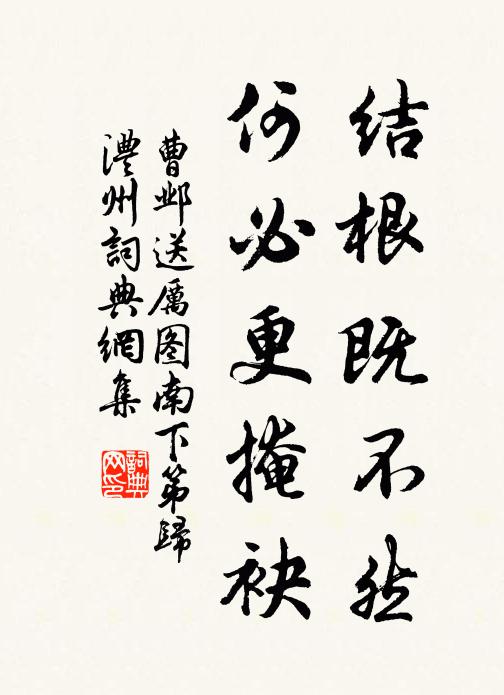 结根既不然
何必更掩袂
曹邺送厲图南下第歸
澧州詞典網集
詞典网印